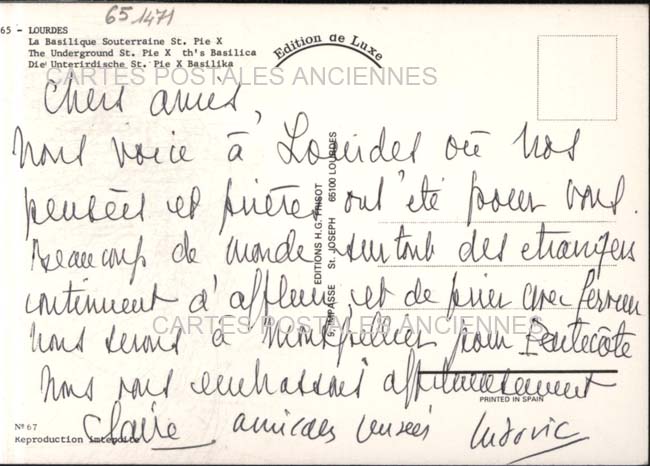 65 1471
65 - LOURDES
La Basilique Souterraine St. Pie X
The Underground St. Pie X th's Basilica
Die Unterirdische St. Pie X Basilika
Edition de Luxe
CARTES POSTALES ANCIENNES
Chers amis,
Nous voici à Lourdes où nos
pensées et prières ont été pour vous.
Beaucoup de monde surtout des etrangers
continuent d'affluer et de prier avec ferveur
CARTES POSTALES ANCIENNES
Nous serons à Montpellier pour Pentecôte
Nous vous embrassons affectueusement
Claire amicales pensées Ludovic
EDITIONS H.G. THISOT
5, IMPASSE St. JOSEPH 65100 LOURDES
PRINTED IN SPAIN
Nº 67
Reproduction interdite